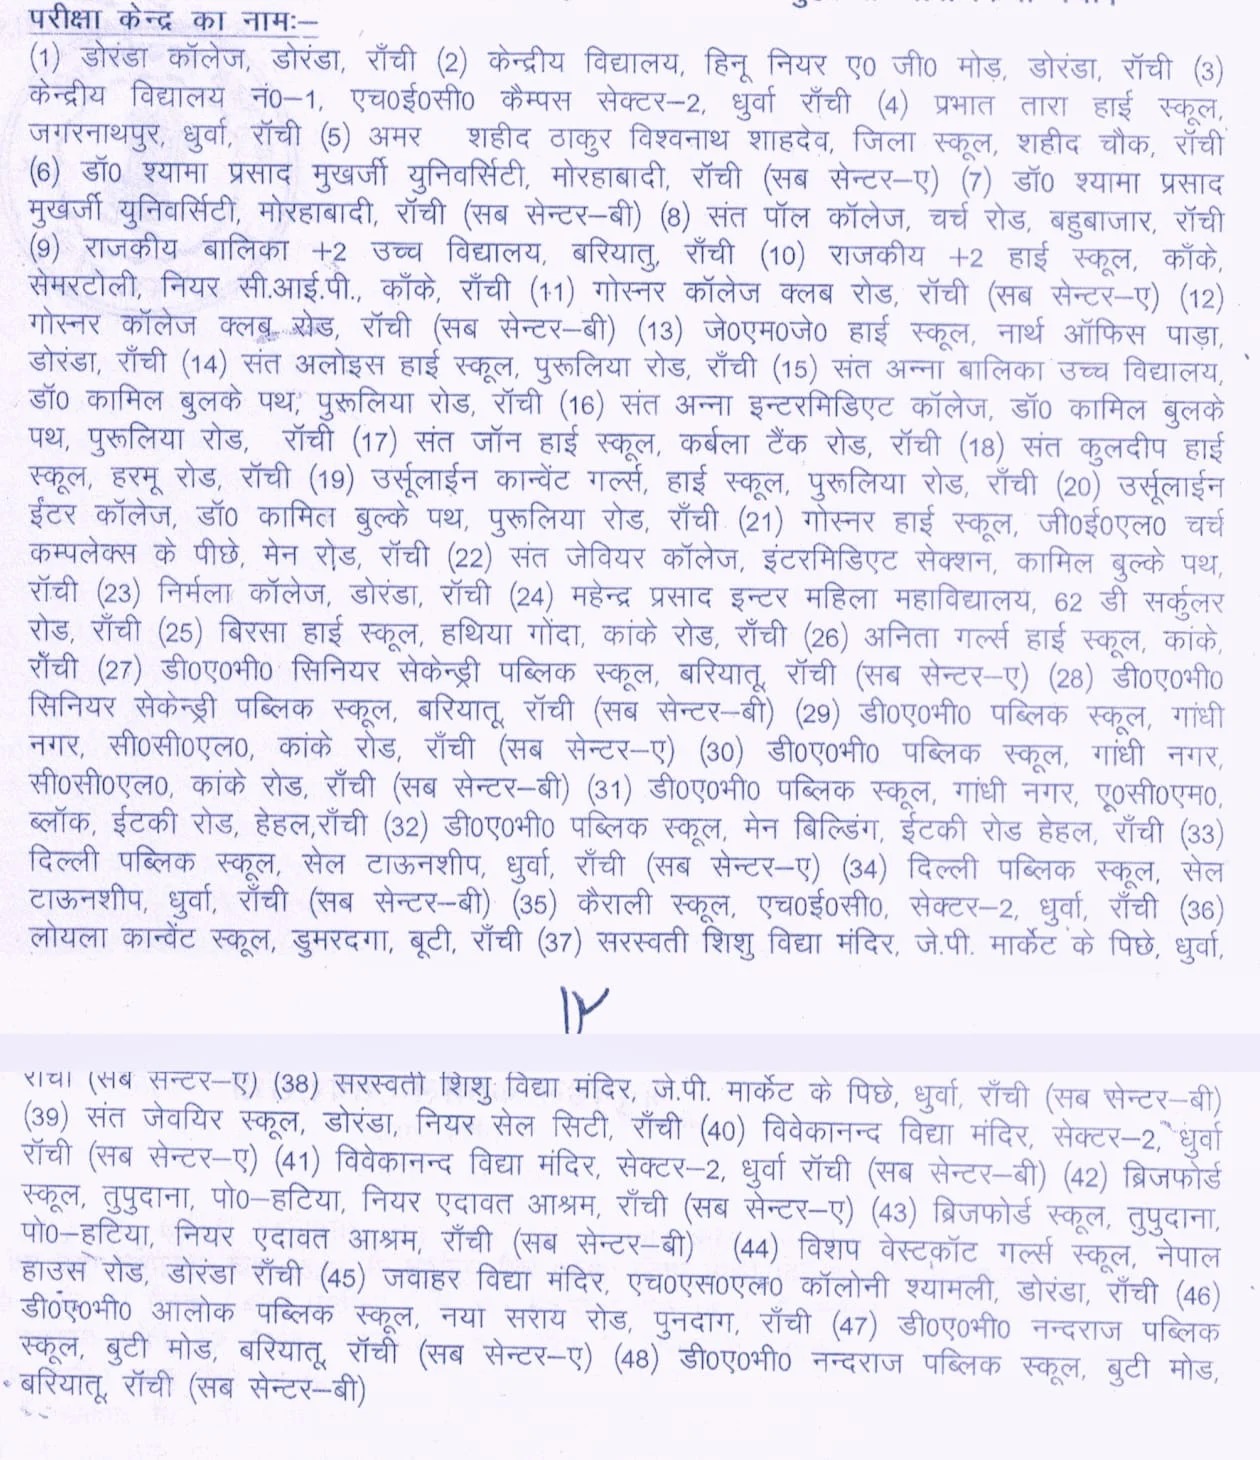 परीक्षा केन्द्र का नामः–
(1) डोरंडा कॉलेज, डोरंडा, राँची (2) केन्द्रीय विद्यालय, हिनू नियर ए0 जी0 मोड़, डोरंडा, रॉची (3)
केन्द्रीय विद्यालय नं0–1, एच0ई0सी0 कैम्पस सेक्टर–2, धुर्वा राँची (4) प्रभात तारा हाई स्कूल,
जगरनाथपुर, धुर्वा, रॉची (5) अमर शहीद ठाकुर विश्वनाथ शाहदेव, जिला स्कूल, शहीद चौक, रॉची
(6) डॉ0 श्यामा प्रसाद मुखर्जी युनिवर्सिटी, मोरहाबादी, रॉची (सब सेन्टर–ए) (7) डॉ0 श्यामा प्रसाद
मुखर्जी युनिवर्सिटी, मोरहाबादी, रॉची (सब सेन्टर–बी) (8) संत पॉल कॉलेज, चर्च रोड, बहुबाजार, रॉची
(9) राजकीय बालिका +2 उच्च विद्यालय, बरियातु, राँची (10) राजकीय +2 हाई स्कूल, काँके,
सेमरटोली, नियर सी.आई.पी., काँके, राँची (11) गोस्नर कॉलेज क्लब रोड, रॉची (सब सेन्टर–ए) (12)
गोस्नर कॉलेज क्लब रोड, रॉची (सब सेन्टर–बी) (13) जे0एम0जे0 हाई स्कूल, नार्थ ऑफिस पाड़ा,
डोरंडा, राँची (14) संत अलोइस हाई स्कूल, पुरूलिया रोड, राँची (15) संत अन्ना बालिका उच्च विद्यालय,
डॉ0 कामिल बुलके पथ, पुरूलिया रोड, रॉची (16) संत अन्ना इन्टरमिडिएट कॉलेज, डॉ0 कामिल बुलके
पथ, पुरूलिया रोड, रॉची (17) संत जॉन हाई स्कूल, कर्बला टैंक रोड, रॉची (18) संत कुलदीप हाई
स्कूल, हरमू रोड, रॉची (19) उर्सूलाईन कान्वेंट गर्ल्स, हाई स्कूल, पुरूलिया रोड, राँची (20) उर्सूलाईन
ईंटर कॉलेज, डॉ0 कामिल बुल्के पथ, पुरूलिया रोड, राँची (21) गोस्नर हाई स्कूल, जी0ई0एल0 चर्च
कम्पलेक्स के पीछे, मेन रोड, रॉची (22) संत जेवियर कॉलेज, इंटरमिडिएट सेक्शन, कामिल बुल्के पथ,
रॉची (23) निर्मला कॉलेज, डोरंडा, रॉची (24) महेन्द्र प्रसाद इन्टर महिला महाविद्यालय, 62 डी सर्कुलर
रोड, राँची (25) बिरसा हाई स्कूल, हथिया गोंदा, कांके रोड, राँची (26) अनिता गर्ल्स हाई स्कूल, कांके,
राँची (27) डी0ए0भी0 सिनियर सेकेन्ड्री पब्लिक स्कूल, बरियातू, रॉची (सब सेन्टर–ए) (28) डी0ए0भी0
सिनियर सेकेन्ड्री पब्लिक स्कूल, बरियातू, रॉची (सब सेन्टर–बी) (29) डी0ए0भी0 पब्लिक स्कूल, गांधी
नगर, सी0सी0एल0, कांके रोड, राँची (सब सेन्टर–ए) (30) डी0ए0भी0 पब्लिक स्कूल, गांधी नगर,
सी0सी0एल0, कांके रोड, राँची (सब सेन्टर–बी) (31) डी0ए0भी0 पब्लिक स्कूल, गांधी नगर, ए0सी0एम0,
ब्लॉक, ईटकी रोड, हेहल,राँची (32) डी0ए0भी0 पब्लिक स्कूल, मेन बिल्डिंग, ईटकी रोड हेहल, राँची (33)
दिल्ली पब्लिक स्कूल, सेल टाऊनशीप, धुर्वा, राँची (सब सेन्टर–ए) (34) दिल्ली पब्लिक स्कूल, सेल
टाऊनशीप, धुर्वा, राँची (सब सेन्टर–बी) (35) कैराली स्कूल, एच0ई0सी0, सेक्टर–2, धुर्वा, राँची (36)
लोयला कान्वेंट स्कूल, डुमरदगा, बूटी, राँची (37) सरस्वती शिशु विद्या मंदिर, जे.पी. मार्केट के पिछे, धुर्वा,
राँची (सब सेन्टर–ए) (38) सरस्वती शिशु विद्या मंदिर, जे.पी. मार्केट के पिछे, धुर्वा, राँची (सब सेन्टर–बी)
(39) संत जेवयिर स्कूल, डोरंडा, नियर सेल सिटी, राँची (40) विवेकानन्द विद्या मंदिर, सेक्टर–2, धुर्वा
रॉची (सब सेन्टर–ए) (41) विवेकानन्द विद्या मंदिर, सेक्टर–2, धुर्वा रॉची (सब सेन्टर–बी) (42) ब्रिजफोर्ड
स्कूल, तुपुदाना, पो0–हटिया, नियर एदावत आश्रम, राँची (सब सेन्टर–ए) (43) ब्रिजफोर्ड स्कूल, तुपुदाना,
पो0–हटिया, नियर एदावत आश्रम, राँची (सब सेन्टर–बी) (44) विशप वेस्टकॉट गर्ल्स स्कूल, नेपाल
हाउस रोड, डोरंडा राँची (45) जवाहर विद्या मंदिर, एच0एस0एल0 कॉलोनी श्यामली, डोरंडा, राँची (46)
डी0ए0भी0 आलोक पब्लिक स्कूल, नया सराय रोड, पुनदाग, राँची (47) डी0ए0भी0 नन्दराज पब्लिक
स्कूल, बुटी मोड, बरियातू, रॉची (सब सेन्टर–ए) (48) डी0ए0भी0 नन्दराज पब्लिक स्कूल, बुटी मोड,
बरियातू, रॉची (सब सेन्टर–बी)